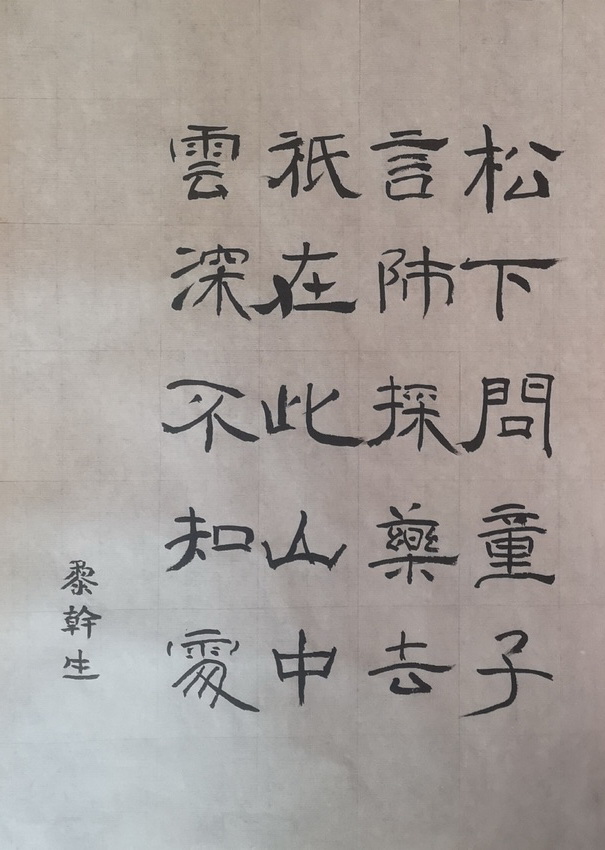 松下問童子
言師採藥去
祇在此山中
雲深不知處
黎幹生